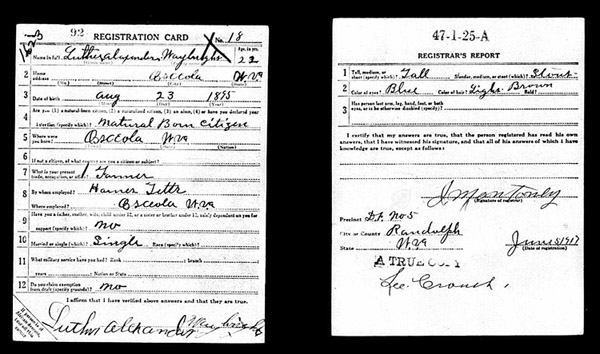 92 REGISTRATION CARD No. 18
1 Name in full Luther Alexander Waybright Age, in yrs. 22
2 Home address Osceola W. Va
3 Date of birth Aug 23 1895
4 Natural Born Citizen
5 Where were you born? Osceola W. Va
6 If not a citizen, of what country are you a citizen or subject?
7 What is your present trade, occupation, or office? Farmer
8 By whom employed?
Where employed? Osceola W. Va
9 Have you a father, mother, wife, child under 12, or a sister or brother under 12, solely dependent on you for support (specify which)? no
10 Married or single (which)? Single Race (specify which)?
11 What military service have you had? Rank branch
years Nation or State
12 Do you claim exemption from draft (specify grounds)? no
I affirm that I have verified above answers and that they are true.
Luther Alexander Waybright
47-1-25-A
REGISTRAR'S REPORT
1 Tall, medium, or short (specify which)? Tall Slender, medium, or stout (which)? Stout
2 Color of eyes? Blue Color of hair? Light Brown Bald?
3 Has person lost arm, leg, hand, foot, or both eyes, or is he otherwise disabled (specify)?
I certify that my answers are true, that the person registered has read his own
answers, that I have witnessed his signature, and that all of his answers of which I have
knowledge are true, except as follows:
(Signature of registrar)
Precinct No 5
City or County Randolph
State W. Va June 5 1917
(Date of registration)
A TRUE COPY
Lee Crouch